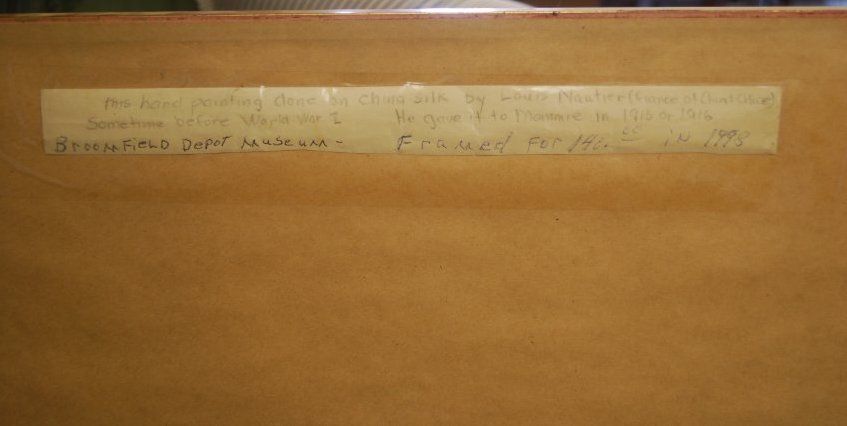 this hand painting done on China silk by Louis Nautier (fiance of Aunt Alice)
Sometime before World War I He gave it to Mammire in 1915 or 1916
BroomField Depot Museum - Framed For 140.00 in 1998